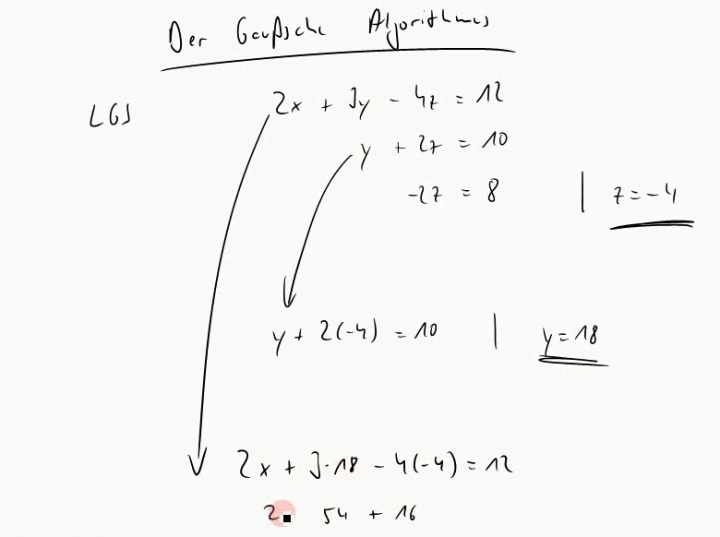 Der Gaußsche Algorithmus
LGS
2x + 3y - 4z = 12
y + 2z = 10
-2z = 8 | z = -4
y + 2(-4) = 10 | y = 18
2x + 3·18 - 4(-4) = 12
2 54 + 16